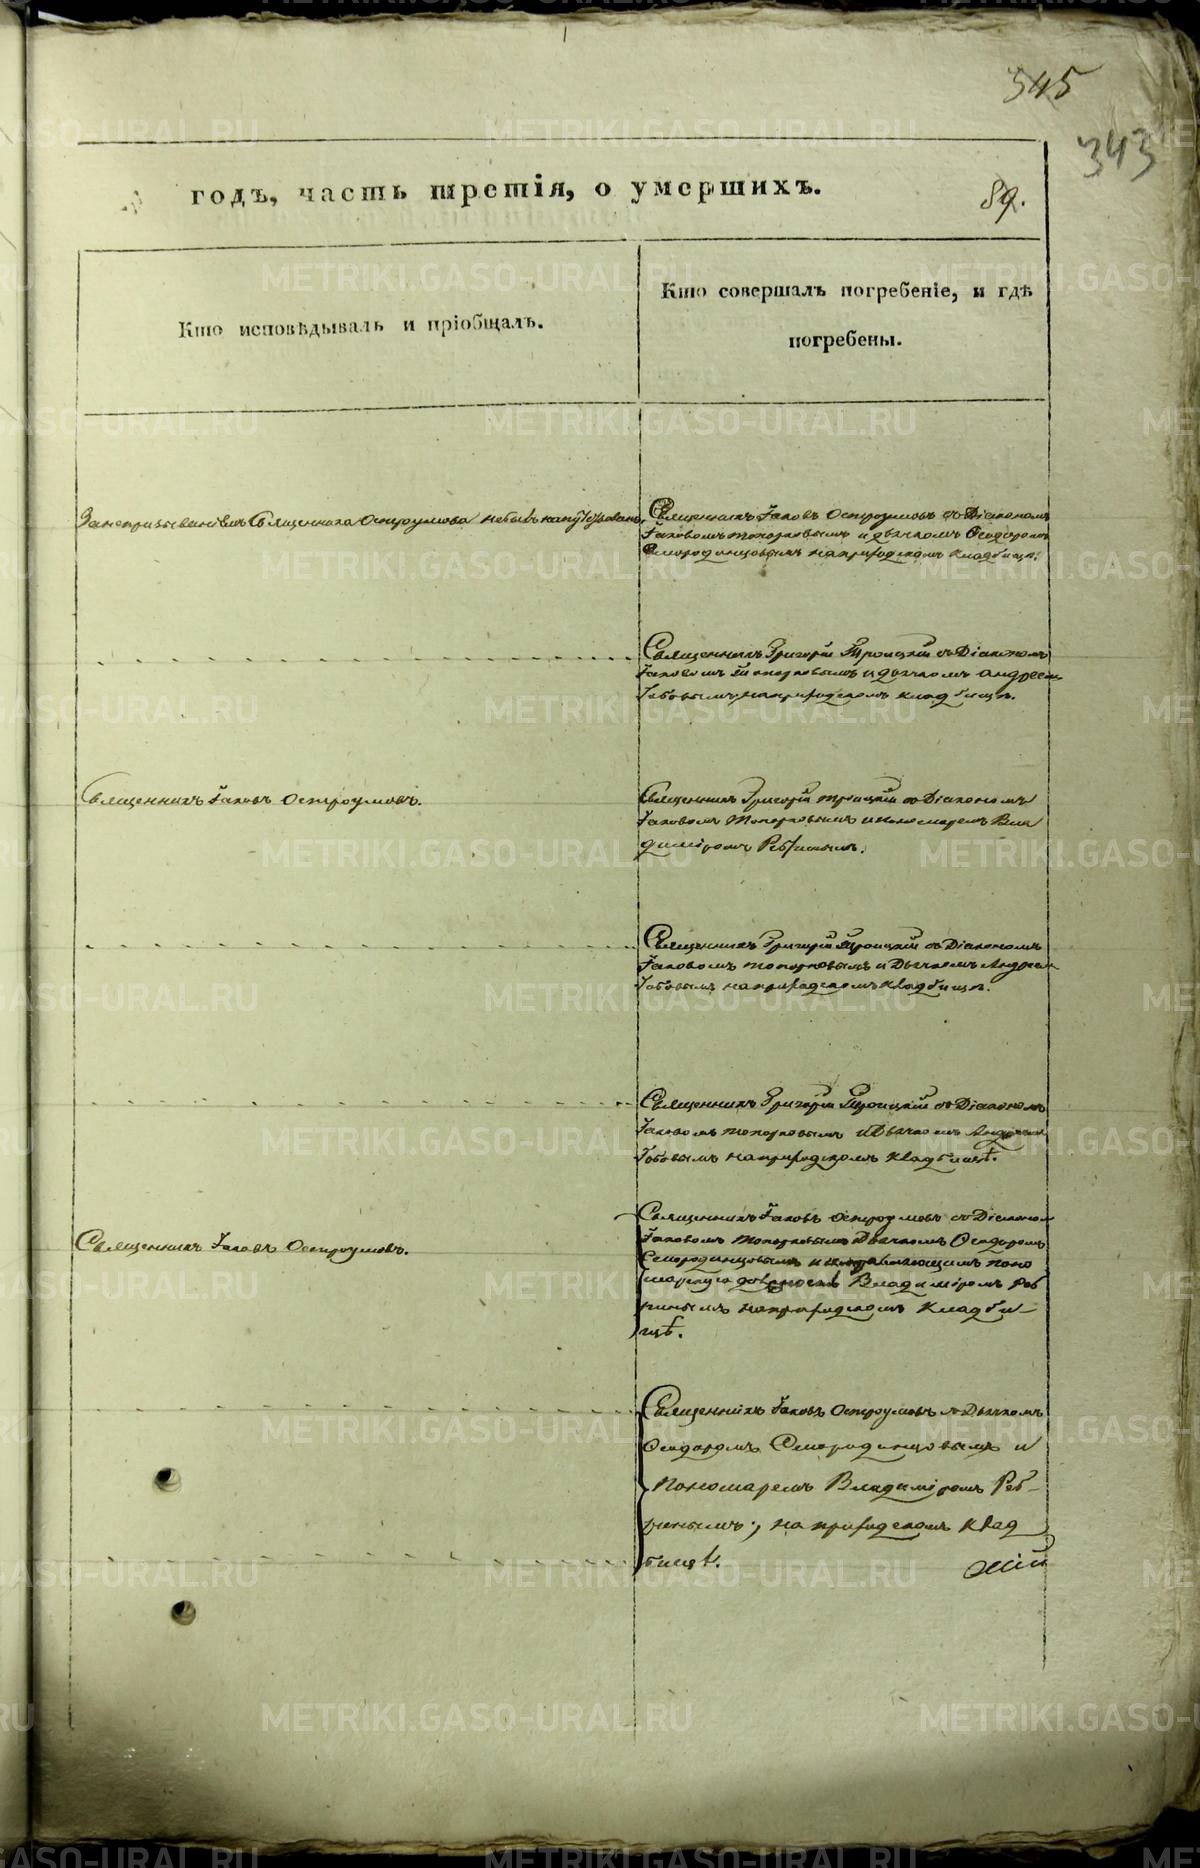 345
343
годъ, часть третія, о умершихъ.
89.
Кто исповѣдывалъ и пріобщалъ.
Кто совершалъ погребеніе, и гдѣ
погребены.
Занепризываніемъ Священника Остроумова небылъ напутствованъ.
Священникъ Іаковъ Остроумовъ съ Діакономъ
Іаковомъ топорковымъ и дьячкомъ Ѳеодоромъ
Смородинцовымъ наприходскомъ кладбищѣ.
Священникъ Григорій Троицкій съ Діакономъ
Іаковомъ Топорковымъ и дьячкомъ андреемъ
Іововымъ, наприходскомъ кладбищѣ.
Священникъ Іаковъ Остроумовъ.
Священникъ Григорій троицкій съ Діакономъ
Іаковомъ Топорковымъ и пономаремъ Вла
диміромъ Ребринымъ.
Священникъ Григорій Троицкій съ Діакономъ
Іаковомъ топорковымъ и Дьячкомъ Андреемъ
Іововымъ наприходскомъ кладбищѣ.
Священникъ Григорій Троицкій съ Діакономъ
Іаковомъ топорковымъ и Дьячкомъ Андреемъ
Іововымъ наприходскомъ кладбищѣ.
Священникъ Іаковъ Остроумовъ.
Священникъ Іаковъ Остроумовъ съ Діакономъ
Іаковомъ Топорковымъ Дьячкомъ Ѳеодоромъ
Смородинцовымъ и исправляющимъ поно
марскую должность Владиміромъ Реб
ринымъ наприходскомъ кладби-
щѣ.
Священникъ Іаковъ Остроумовъ съ Дьячкомъ
Ѳеодоромъ Смородинцовымъ и
пономаремъ Владиміромъ Реб-
ринымъ, на приходскомъ клад
бищѣ.
METRIKI.GASO-URAL.RU